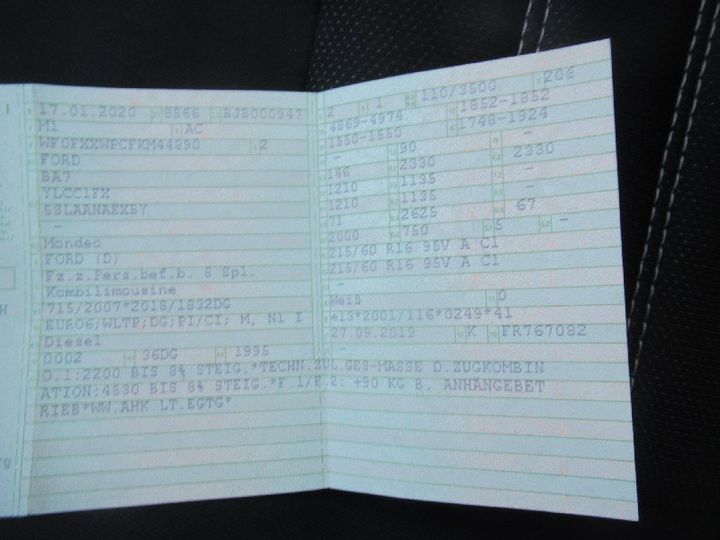 17.01.2020 8566 BJB000947
M1 AC
WF0FXXWPCFKM44890 2
FORD
BA7
YLCC1FX
5BLAANAEXBY
-
Mondeo
FORD (D)
Fz.z.Pers.bef.b. 8 Spl.
Kombilimousine
715/2007*2018/1832DG
EURO6;WLTP;DG;PI/CI; M, N1 I
Diesel
0002 36DG 1995
O.1:2200 BIS 8% STEIG.*TECHN.ZUL.GES-MASSE D.ZUGKOMBIN
ATION:4530 BIS 8% STEIG.*F.1/F.2: +90 KG B. ANHANGEBET
RIEB*WW.AHK LT.EGTG*
2 1 110/3500 206
4869-4974 1852-1852
1550-1550 1746-1924
- 90 -
146 2330 2330
1210 1135 -
1210 1135 -
71 2625 67
2000 750 5 -
215/60 R16 95V A C1
215/60 R16 95V A C1
-
Weiß 0
e13*2001/116*0249*41
27.09.2019 K FR767082
-